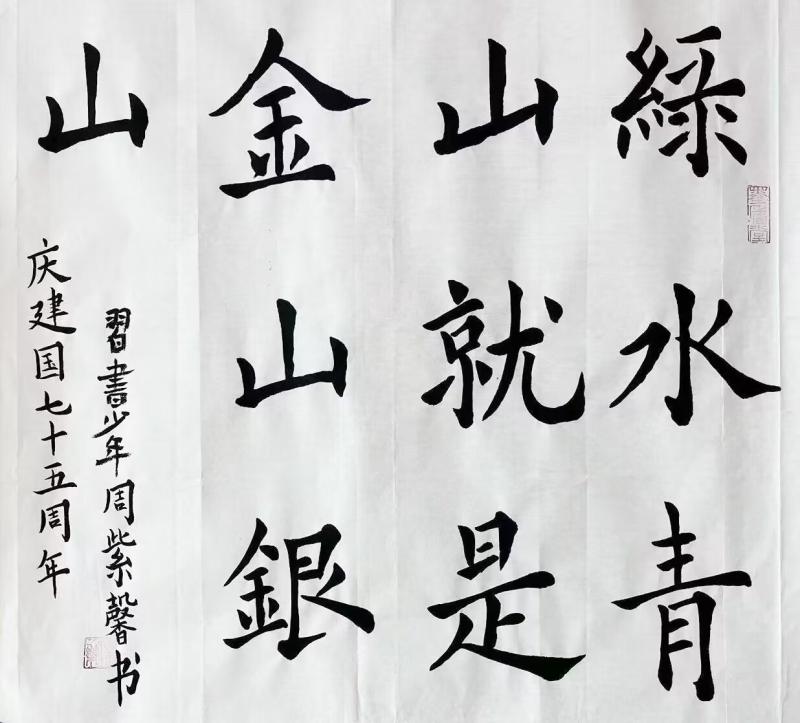 綠水青
山就是
金山銀
山
習書少年周紫馨书
庆建国七十五周年